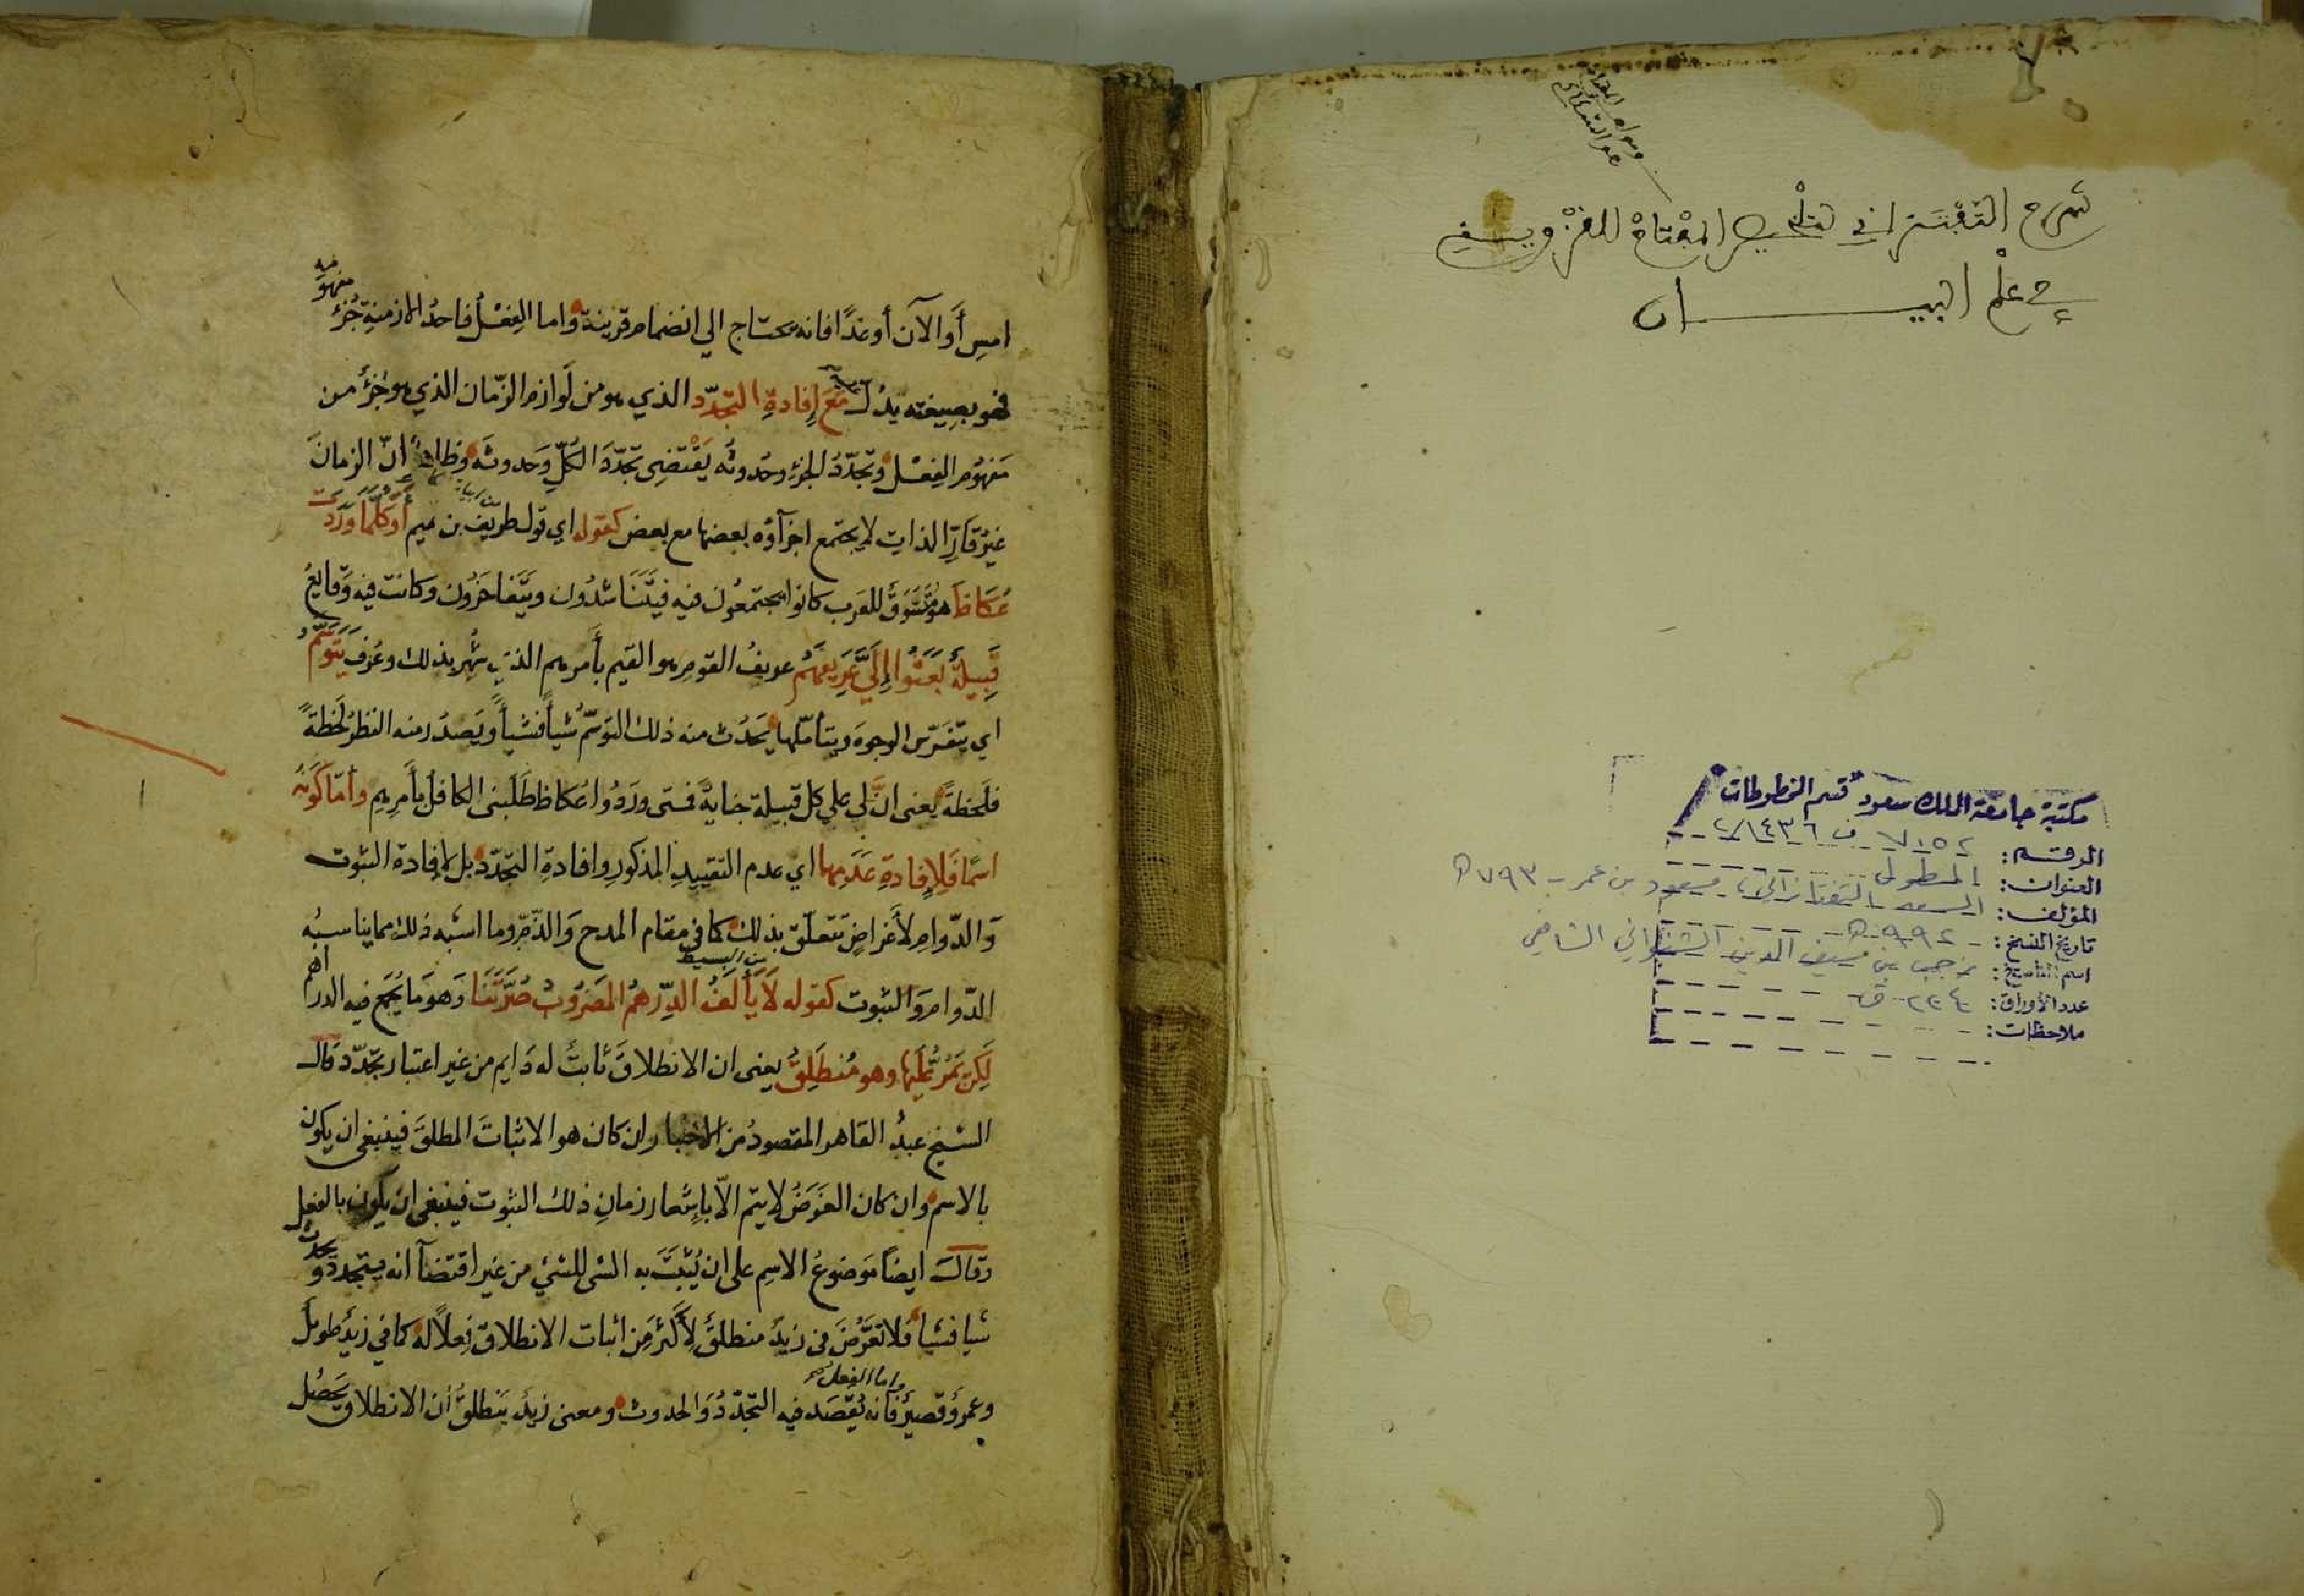 شرح التفتزاني لتلخيص المفتاح للقزويني
في علم البيـــــان
مكتبة جامعة الملك سعود قسم المخطوطات
الرقـــم: ٧١٥٢ ف ١٤٣٦/٢
العنوان: المطول
المؤلف: السعد التفتازاني، مسعود بن عمر - ٧٩٣ه
تاريخ النسخ: ٩٩٢ه
اسم الناسخ: رجب بن سيف الدين الشنواني الشافعي
عدد الأوراق: ٢٣٤ ق
ملاحظات:
امسِ أَو الآن أو غدًا فانه يحتاج الي انضمام قرينة واما الفِعْلُ فاحدُ الازمنةِ جُزءُ مفهومه
فهو بصيغته يدُل عليه مَعَ إِفادةِ التجدّد الذي هو من لَوازم الزّمان الذي هو جُزءُ من
مَفهُوم الفِعْل وتجدّدُ الجزءِ وحُدوثُه يَقْتضِى تجدّدَ الكُلِّ وَحدوثَه وظاهرٌ انّ الزمانَ
غيرُ قَارّ الذاتِ لا يجتمع اجزآؤه بعضها مع بعض كقوله اي قول طريف بن تميم أَوَكُلَّمَا وَرَدَتْ
عُكَاظَ هو سُوقٌ للعَرب كانوا يجتمعُون فيه فيَتَنَاشدُون ويَتَفاخَرُون وكانت فيه وَقايعُ
قَبِيلَةٌ بَعَثُوا إِلَيَّ عَرِيفَهُمْ عريفُ القوم هو القيم بأَمرهم الذي شُهر بذلك وعُرف يَتَوَسَّمُ
اي يتفَرّس الوجوهَ ويتأمّلها يَحدُث منه ذلك التوسّم شيأً فشيأً ويَصدُر منه النظرُ لحَظةً
فلَحظةً يعنى انّ لي علي كل قبيلة جنايةً فمتى ورَدُوا عُكاظ طَلَبَنى الكافل بأَمرِهم وأمّا كَونُه
اسمًا فَلإِفادةِ عَدَمِها اي عدم التقييدِ المذكورِ وافادةِ التجدّد بل لإفادة الثبوت
وَالدّوامِ لأَغراضٍ تَتعلّق بذلك كما في مقام المدح وَالذّم وما اشبه ذلك مما يناسبُه
الدّوام وَالثبوت كقوله من البسيط لَا يَأْلَفُ الدِّرهمُ المَضرُوبُ صُرَّتَنَا وَهو مَا يُجمَع فيه الدراهم
لَكِنْ يَمُرُّ عَلَيْهَا وهو مُنطَلِقُ يعنى ان الانطلاقَ ثابتٌ له دَايم من غير اعتبار تجدّد قال
الشيخ عبدُ القاهر المقصودُ من الاخبار ان كان هو الاثباتَ المطلقَ فينبغى ان يكون
بالاسم وان كان الغَرَضُ لا يتم الاّ بإِشعار زمانِ ذلك الثبوت فينبغى ان يكون بالفعل
وقال ايضًا مَوضوعُ الاسِم على ان يُثبَتَ به الشى للشئ من غير اقتضآ انه يتجدد ويحدث
شيا فشيا فلا تعَرُّضَ في زيدٌ منطلقٌ لأَكثرَ مِن اثبات الانطلاق فِعلاً له كما في زيدٌ طويلٌ
وعمرٌو قصيرٌ واما الفعل فانه يُقصَد فيه التجدّدُ وَالحدوث ومعنى زيدٌ يَنطلقُ أن الانطلاق يَحصُل